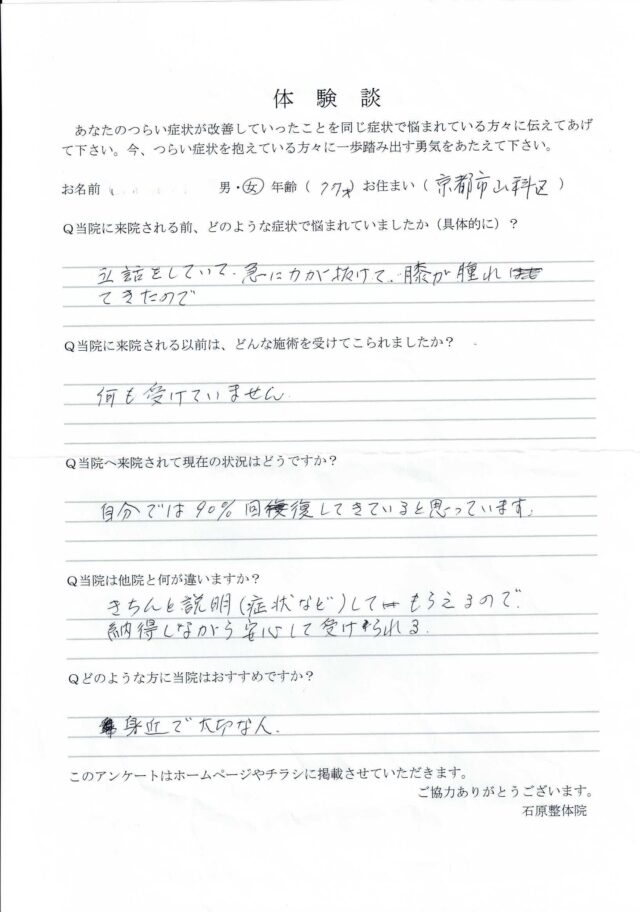 体験談
あなたのつらい症状が改善していったことを同じ症状で悩まれている方々に伝えてあげ
て下さい。今、つらい症状を抱えている方々に一歩踏み出す勇気をあたえて下さい。
お名前 男・女 年齢（77才）お住まい（京都市山科区）
Q当院に来院される前、どのような症状で悩まれていましたか（具体的に）？
立話をしていて、急に力が抜けて、膝が腫れ
てきたので
Q当院に来院される以前は、どんな施術を受けてこられましたか？
何も受けていません
Q当院へ来院されて現在の状況はどうですか？
自分では90％回復してきていると思っています。
Q当院は他院と何が違いますか？
きちんと説明（症状など）してもらえるので、
納得しながら安心して受けられる。
Qどのような方に当院はおすすめですか？
身近で大切な人。
このアンケートはホームページやチラシに掲載させていただきます。
ご協力ありがとうございます。
石原整体院